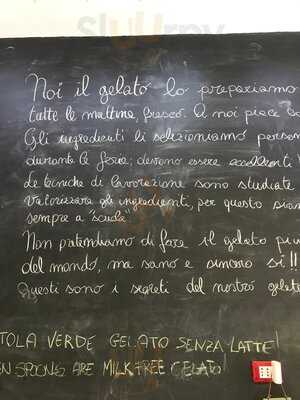 Sluurpy
Noi il gelato lo prepariamo
tutte le mattine, fresco. A noi piace
Gli ingredienti li selezioniamo person
durante le ferie; devono essere eccellenti
Le tecniche di lavorazione sono studiate
valorizzare gli ingredienti, per questo siamo
sempre a "scuola"
Non pretendiamo di fare il gelato più
del mondo, ma sano e sincero si!!
Questi sono i segreti del nostro gelato
TOLA VERDE GELATO SENZA LATTE!
EN SPOONS ARE MILK FREE GELATO!